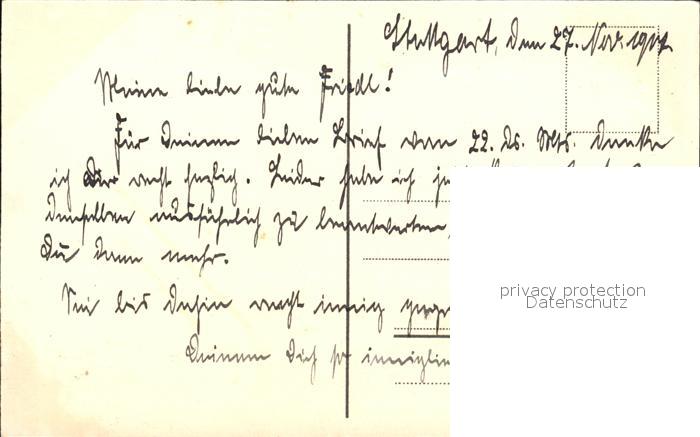 Stuttgart, den 27. Nov. 1917
Meine liebe gute Friedl!
Für Deinen lieben Brief vom 22. ds. Mts. danke
ich Dir recht herzlich. Leider habe ich
denselben ausführlich zu beantworten,
Du dann mehr.
Sei bis dahin recht innig
Deinem Dich so
privacy protection
Datenschutz